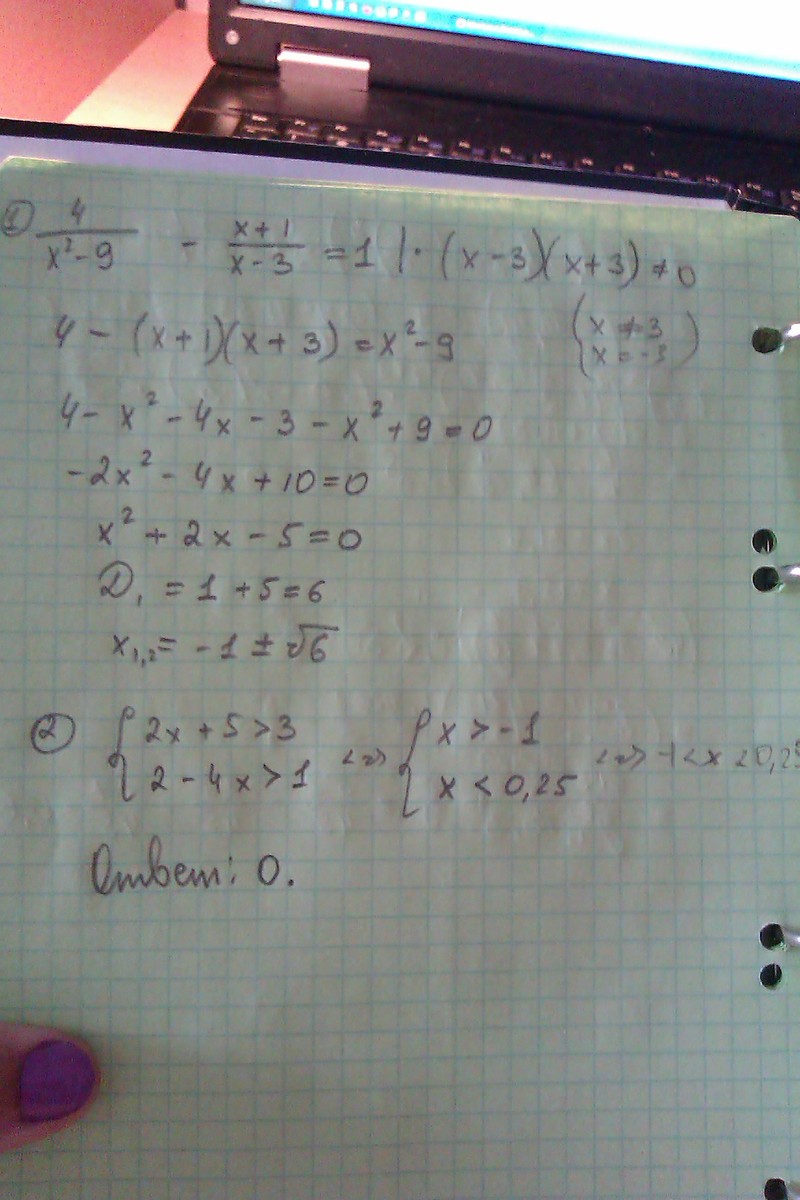 ① 4/(x²-9) - (x+1)/(x-3) = 1 | · (x-3)(x+3) ≠ 0
4 - (x+1)(x+3) = x²-9 (x ≠ 3
x = -3)
4 - x² - 4x - 3 - x² + 9 = 0
-2x² - 4x + 10 = 0
x² + 2x - 5 = 0
D₁ = 1 + 5 = 6
x₁,₂ = -1 ± √6
② { 2x + 5 > 3 <=> { x > -1 <=> -1 < x < 0,25
2 - 4x > 1 x < 0,25
Ответ: 0.